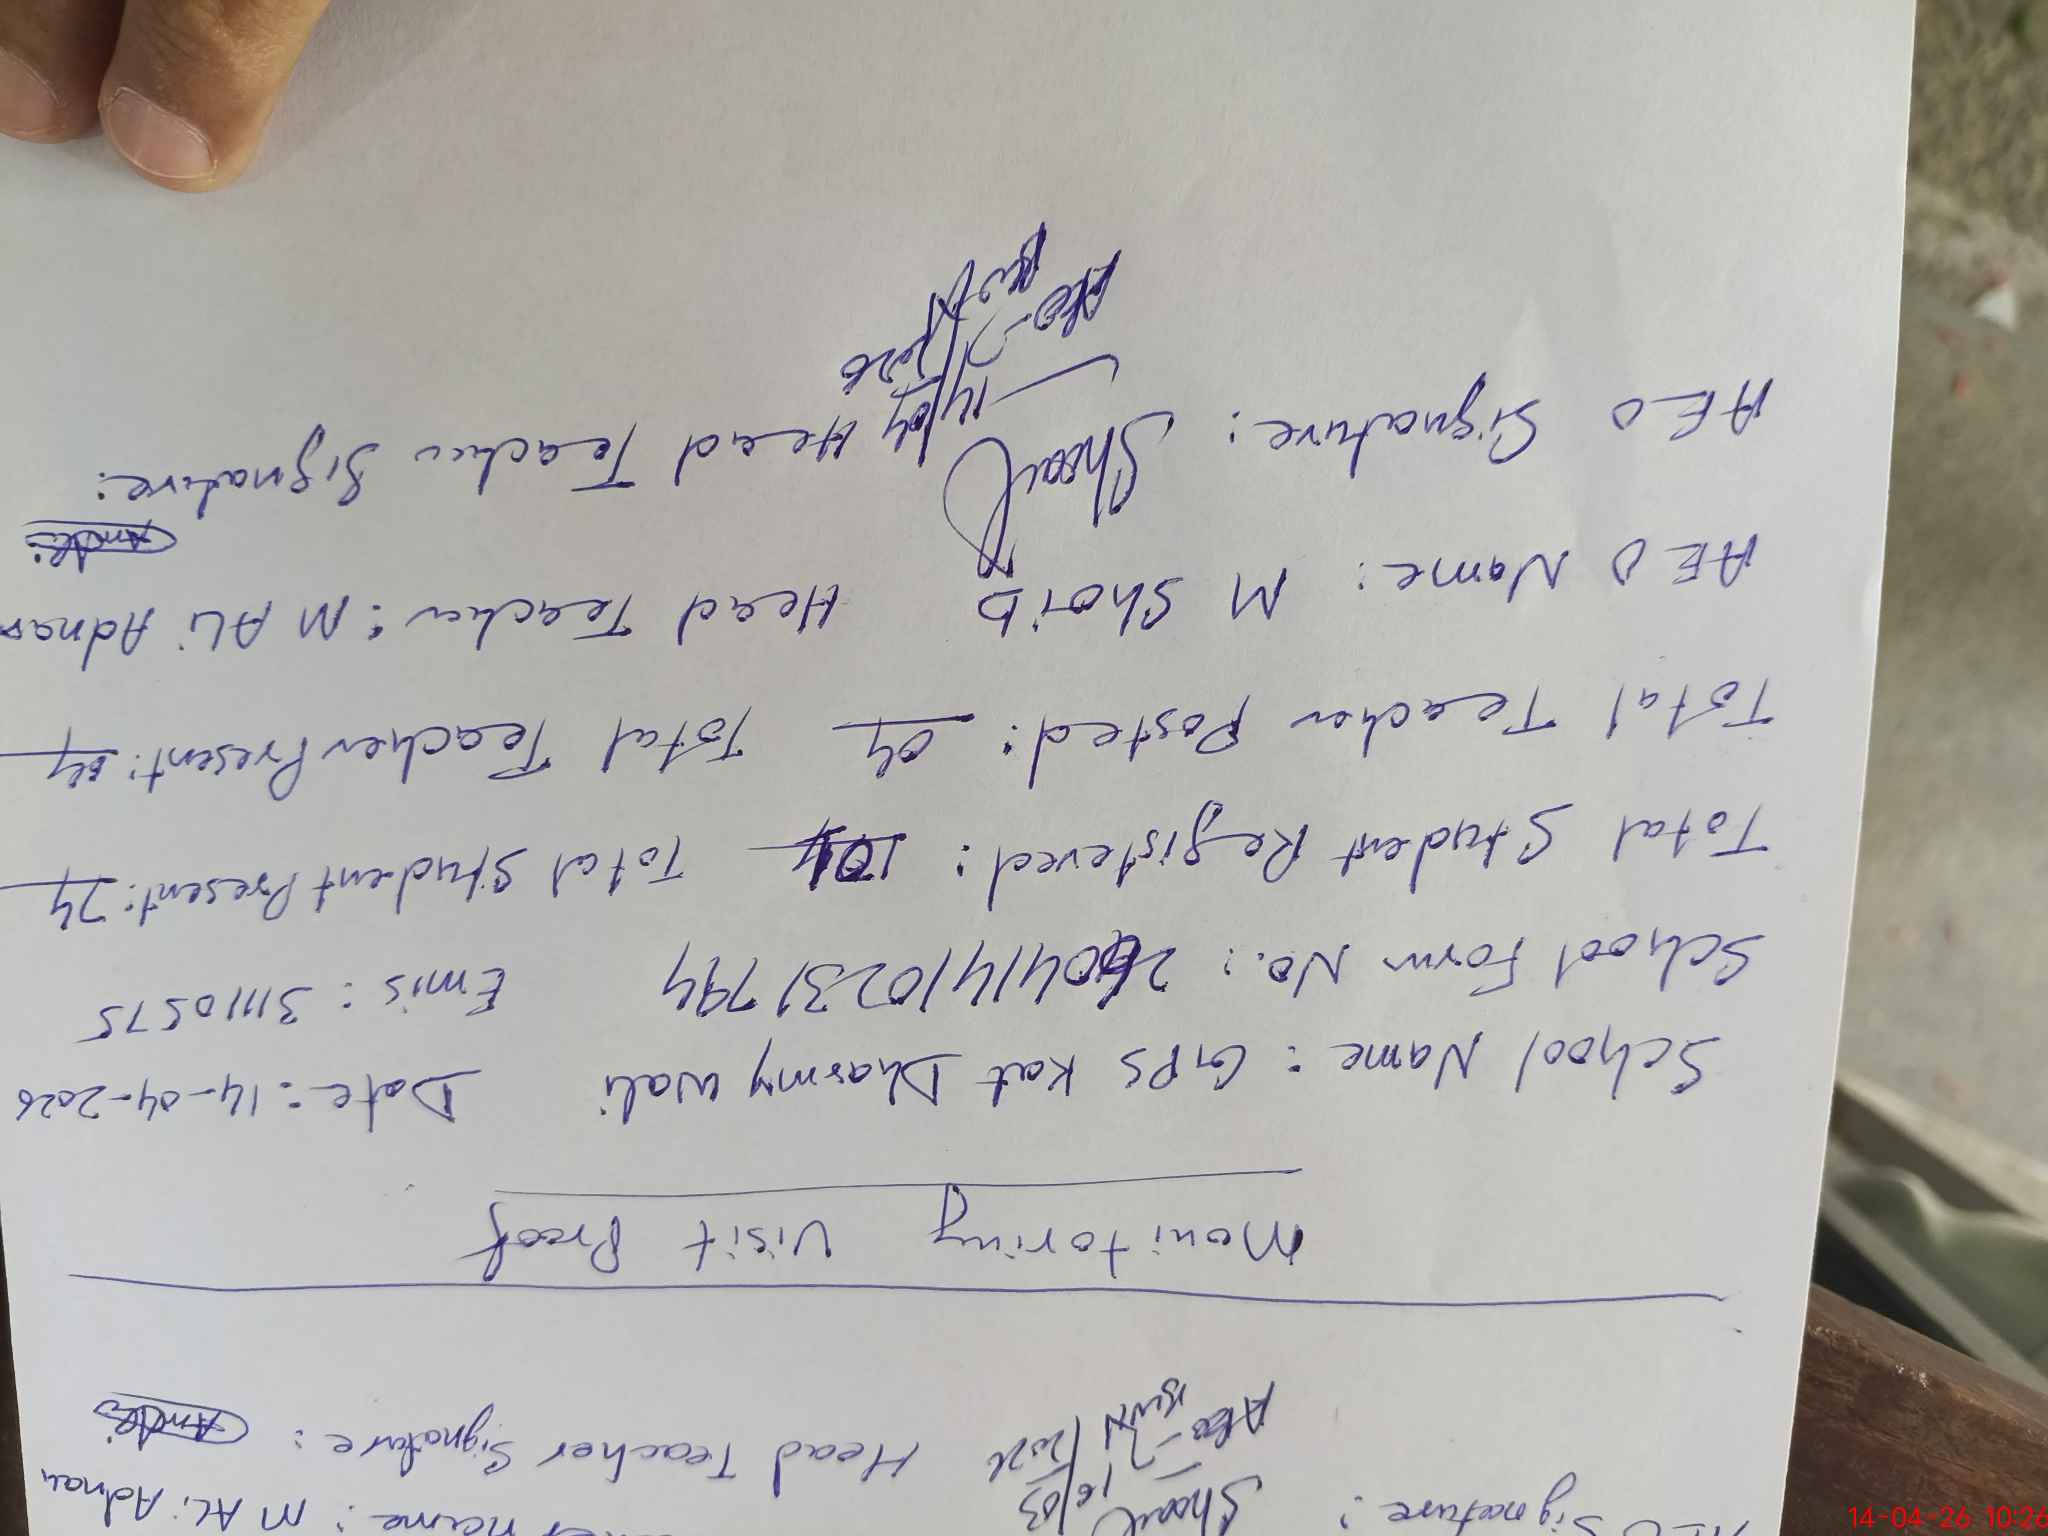 Name: M ALi Adnan
AEO Signature: Shoail 16/03/2026 Head Teacher Signature:
AEO
Monitoring Visit Proof
School Name: GPS Kot Dharmy Wali Date: 14-04-2026
School Form No.: 260414/0231794 Emis: 31110575
Total Student Registered: 104 Total Student Present: 74
Total Teacher Posted: 04 Total Teacher Present: 04
AEO Name: M Shoib Head Teacher: M ALi Adnan
AEO Signature: Shoail 14/04/2026 Head Teacher Signature:
AEO
14-04-26 10:26